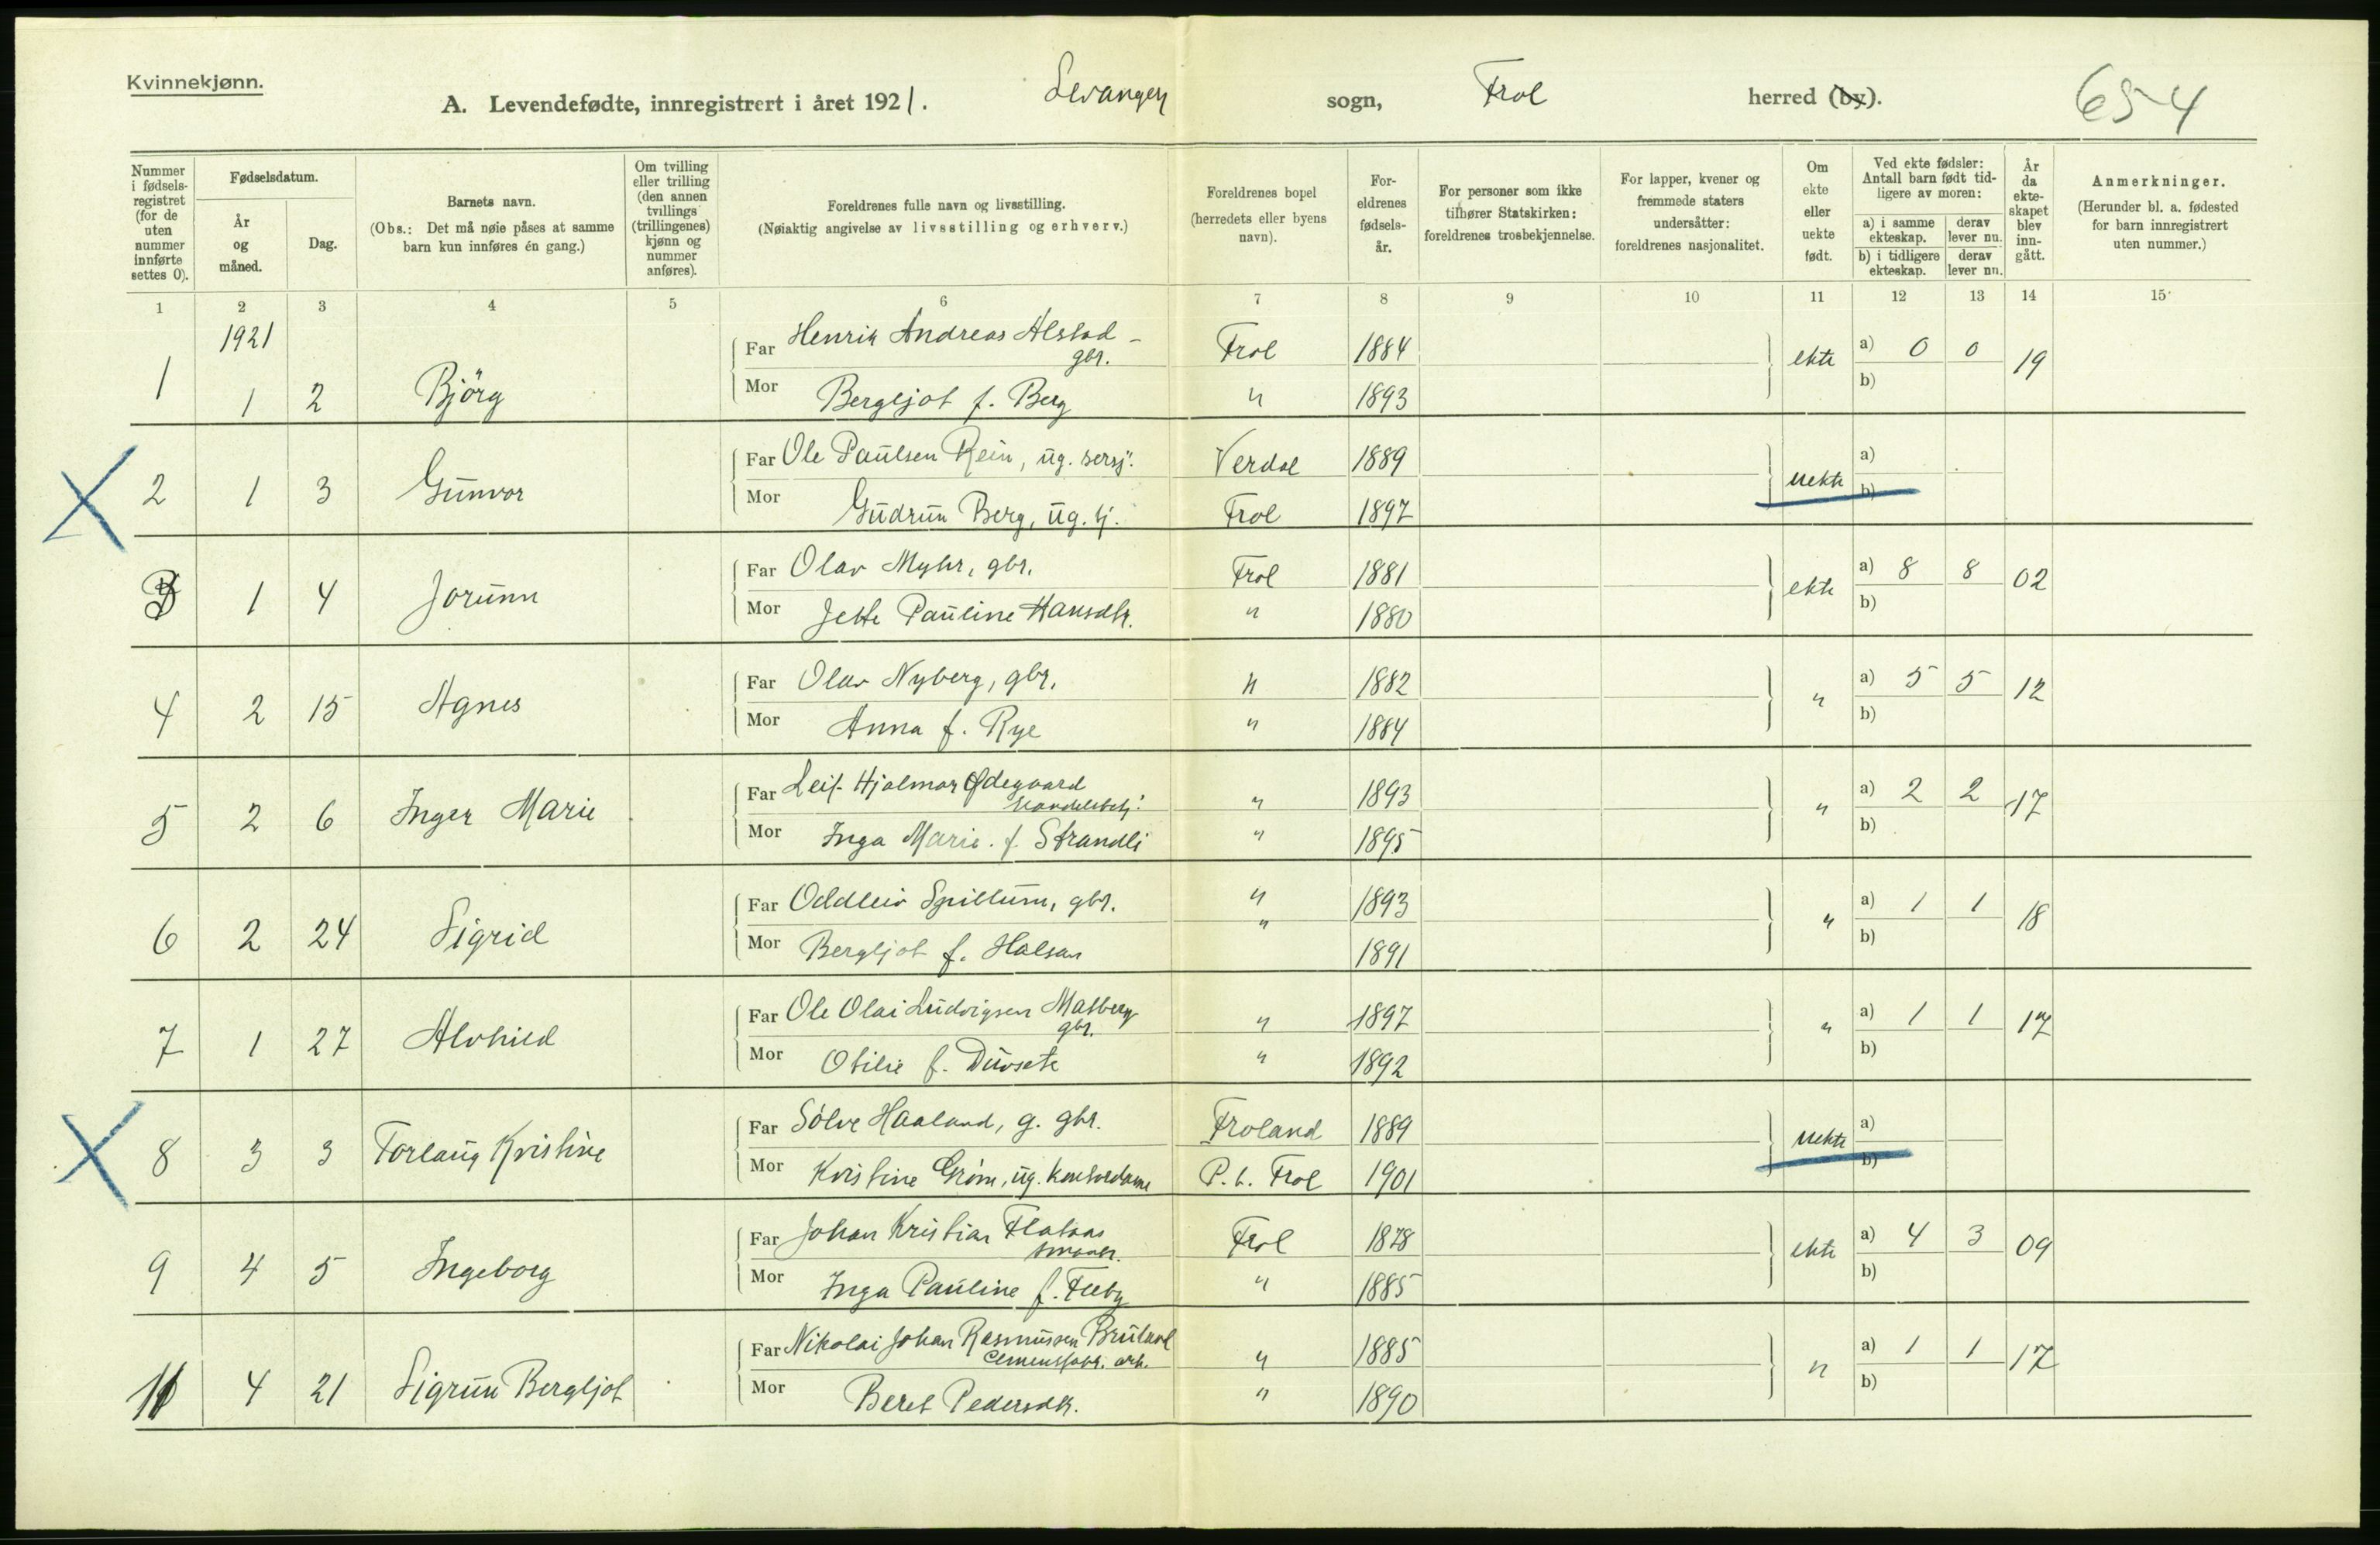 Kvinnekjønn.
A. Levendefødte, innregistrert i året 1921. Levanger sogn, Frol herred (by). 654
Nummer i fødsels-registret (for de uten nummer innførte settes 0).
Fødselsdatum.
År og måned.
Dag.
Barnets navn.
(Obs.: Det må nøie påses at samme barn kun innføres én gang.)
Om tvilling eller trilling (den annen tvillings (trillingenes) kjønn og nummer anføres).
Foreldrenes fulle navn og livsstilling.
(Nøiaktig angivelse av livsstilling og erhverv.)
Foreldrenes bopel (herredets eller byens navn).
For-eldrenes fødsels-år.
For personer som ikke tilhører Statskirken: foreldrenes trosbekjennelse.
For lapper, kvener og fremmede staters undersåtter: foreldrenes nasjonalitet.
Om ekte eller uekte født.
Ved ekte fødsler: Antall barn født tid-ligere av moren:
a) i samme ekteskap. derav lever nu.
b) i tidligere ekteskap. derav lever nu.
År da ekte-skapet blev inn-gått.
Anmerkninger.
(Herunder bl. a. fødested for barn innregistrert uten nummer.)
1 2 3 4 5 6 7 8 9 10 11 12 13 14 15
1921
Far Henrik Andreas Alstad - gbr. Frol 1884 ekte a) 0 0 19
1 1 2 Björg
Mor Bergljot f. Berg " 1893 b)
Far Ole Paulsen Rein, ug. Verdal 1889 uekte a)
2 1 3 Gunvor
Mor Gudrun Berg, ug. tj. Frol 1897 b)
Far Olav Myhr, gbr. Frol 1881 ekte a) 8 8 02
3 1 4 Jorunn
Mor Jette Pauline Hansdtr. " 1880 b)
Far Olav Nyberg, gbr. " 1882 " a) 5 5 12
4 2 15 Agnes
Mor Anna f. Rye " 1884 b)
Far Leif Hjalmar Ødegaard Handelsbetj. " 1893 " a) 2 2 17
5 2 6 Inger Marie
Mor Inga Marie f. Strandli " 1895 b)
Far Oddleiv Spillum, gbr. " 1893 " a) 1 1 18
6 2 24 Sigrid
Mor Bergljot f. Halsan " 1891 b)
Far Ole Olai Ludvigsen Matberg gbr. " 1897 " a) 1 1 17
7 1 27 Alvhild
Mor Otilie f. Duvsete " 1892 b)
Far Sölve Haaland, g. gbr. Froland 1889 uekte a)
8 3 3 Torlaug Kristine
Mor Kristine Gröm, ug. kontordame P. t. Frol 1901 b)
Far Johan Kristian Flataas Frol 1878 ekte a) 4 3 09
9 4 5 Ingeborg
Mor Inga Pauline f. Fleby " 1885 b)
Far Nikolai Johan Rasmussen Cementfabr. arb. " 1885 " a) 1 1 17
4 21 Sigrun Bergljot
Mor Beret Pedersdtr. " 1890 b)